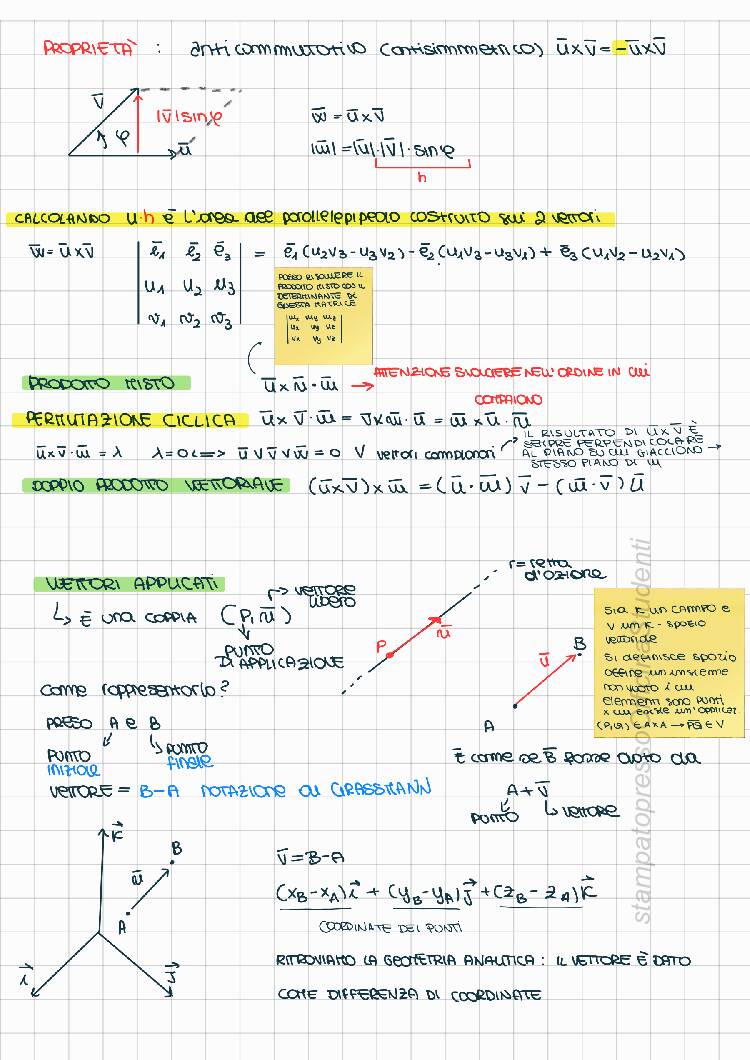 PROPRIETÀ : anticommutativo (antisimmetrico) ū×v̄ = -ū×v̄
v̄ |v̄|sinφ
φ ū
w̄ = ū×v̄
|w̄| = |ū|·|v̄|·sinφ
h
CALCOLANDO u·h è l'area del parallelepipedo costruito sui 2 vettori
w̄ = ū×v̄ | ē₁ ē₂ ē₃ | = ē₁(u₂v₃-u₃v₂) - ē₂(u₁v₃-u₃v₁) + ē₃(u₁v₂-u₂v₁)
u₁ u₂ u₃
v₁ v₂ v₃
POSSO RISOLVERE IL
PRODOTTO MISTO CON IL
DETERMINANTE DI
QUESTA MATRICE
PRODOTTO MISTO ū×v̄·w̄ → ATTENZIONE SVOLGERE NELL'ORDINE IN CUI
COMPAIONO
PERMUTAZIONE CICLICA ū×v̄·w̄ = v̄×w̄·ū = w̄×ū·v̄
ū×v̄·w̄ = λ λ=0 <=> ū V v̄ V w̄ = 0 V vettori complanari
IL RISULTATO DI ū×v̄ È
SEMPRE PERPENDICOLARE
AL PIANO SU CUI GIACCIONO →
STESSO PIANO DI w
DOPPIO PRODOTTO VETTORIALE (ū×v̄)×w̄ = (ū·w̄)v̄ - (w̄·v̄)ū
VETTORI APPLICATI
↳ È una COPPIA (P, ū) → VETTORE
LIBERO
PUNTO
DI APPLICAZIONE
r = retta
d'azione
P ū
Sia K un CAMPO e
V un K-spazio
vettoriale
Si definisce spazio
affine un insieme
non vuoto i cui
elementi sono punti
x cui esiste un'applicaz.
(P,Q) ∈ A×A → PQ ∈ V
Come rappresentarlo?
PRESO A e B
PUNTO
INIZIALE
PUNTO
finale
VETTORE = B-A NOTAZIONE DI GRASSMANN
A v̄ B
È come se B fosse dato da
A + v̄
PUNTO VETTORE
k
B
ū
A
i j
v̄ = B-A
(x_B - x_A)i + (y_B - y_A)j + (z_B - z_A)k
COORDINATE DEI PUNTI
RITROVIAMO LA GEOMETRIA ANALITICA : IL VETTORE È DATO
COME DIFFERENZA DI COORDINATE